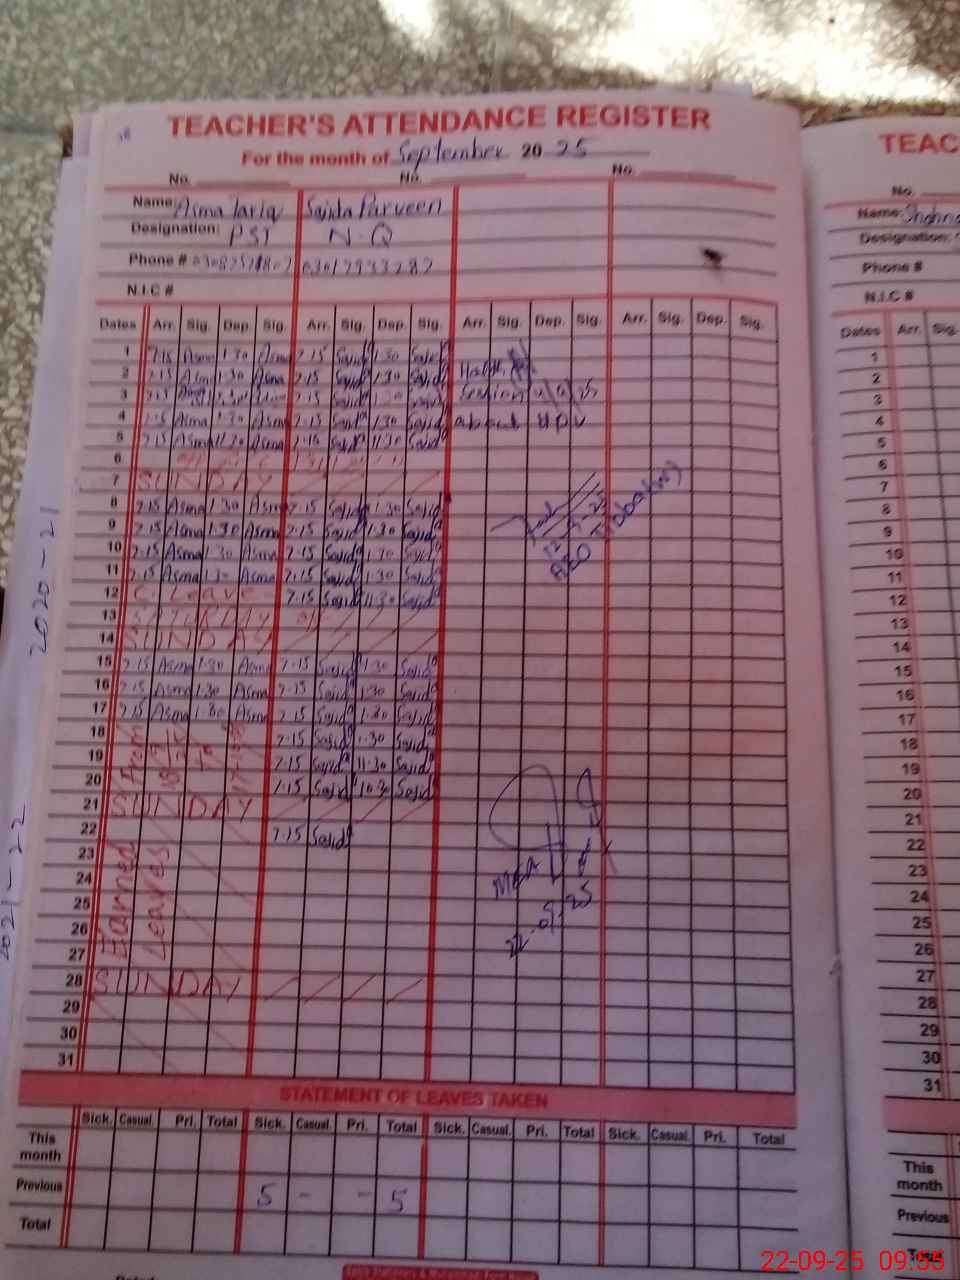 TEACHER'S ATTENDANCE REGISTER
For the month of September 2025
No. No. No.
Name: Asma Tariq Sajda Parveen
Designation: PST N.Q
Phone #
N.I.C #
Dates Arr. Sig. Dep. Sig. Arr. Sig. Dep. Sig. Arr. Sig. Dep. Sig. Arr. Sig. Dep. Sig.
1 7.15 Asma 1.30 Asma 7.15 Sajid 1.30 Sajid
2 7.15 Asma 1.30 Asma 7.15 Sajid 1.30 Sajid Health
3 7.15 Sajid Session
4 Asma 1.30 Asma 7.15 Sajid 1.30 Sajid about
5 7.15 Asma 11.30 Asma 7.15 Sajid 11.30 Sajid
6
7 SUNDAY
8 7.15 Asma 1.30 Asma 7.15 Sajid 1.30 Sajid
9 7.15 Asma 1.30 Asma 7.15 Sajid 1.30 Sajid
10 7.15 Asma 1.30 Asma 7.15 Sajid 1.30 Sajid
11 7.15 Asma 1.30 Asma 7.15 Sajid 1.30 Sajid
12 C. Leave 7.15 Sajid 11.30 Sajid
13 SATURDAY
14 SUNDAY
15 7.15 Asma 1.30 Asma 7.15 Sajid 1.30 Sajid
16 7.15 Asma 1.30 Asma 7.15 Sajid 1.30 Sajid
17 7.15 Asma 1.30 Asma 7.15 Sajid 1.30 Sajid
18 7.15 Sajid 1.30 Sajid
19 7.15 Sajid 11.30 Sajid
20 7.15 Sajid 10.30 Sajid
21 SUNDAY
22 7.15 Sajid
23
24
25
26
27
28 SUNDAY
29
30
31
From
Earned
Leaves
12-9-25
AEO
MEA
22-09-25
STATEMENT OF LEAVES TAKEN
Sick. Casual. Pri. Total Sick. Casual. Pri. Total Sick. Casual. Pri. Total Sick. Casual. Pri. Total
This month
Previous 5 - - 5
Total
2020-21
2021-22
TEAC
No.
Name:
Designation:
Phone #
N.I.C #
Dates Arr. Sig.
1
2
3
4
5
6
7
8
9
10
11
12
13
14
15
16
17
18
19
20
21
22
23
24
25
26
27
28
29
30
31
This month
Previous
Total
22-09-25 09:55